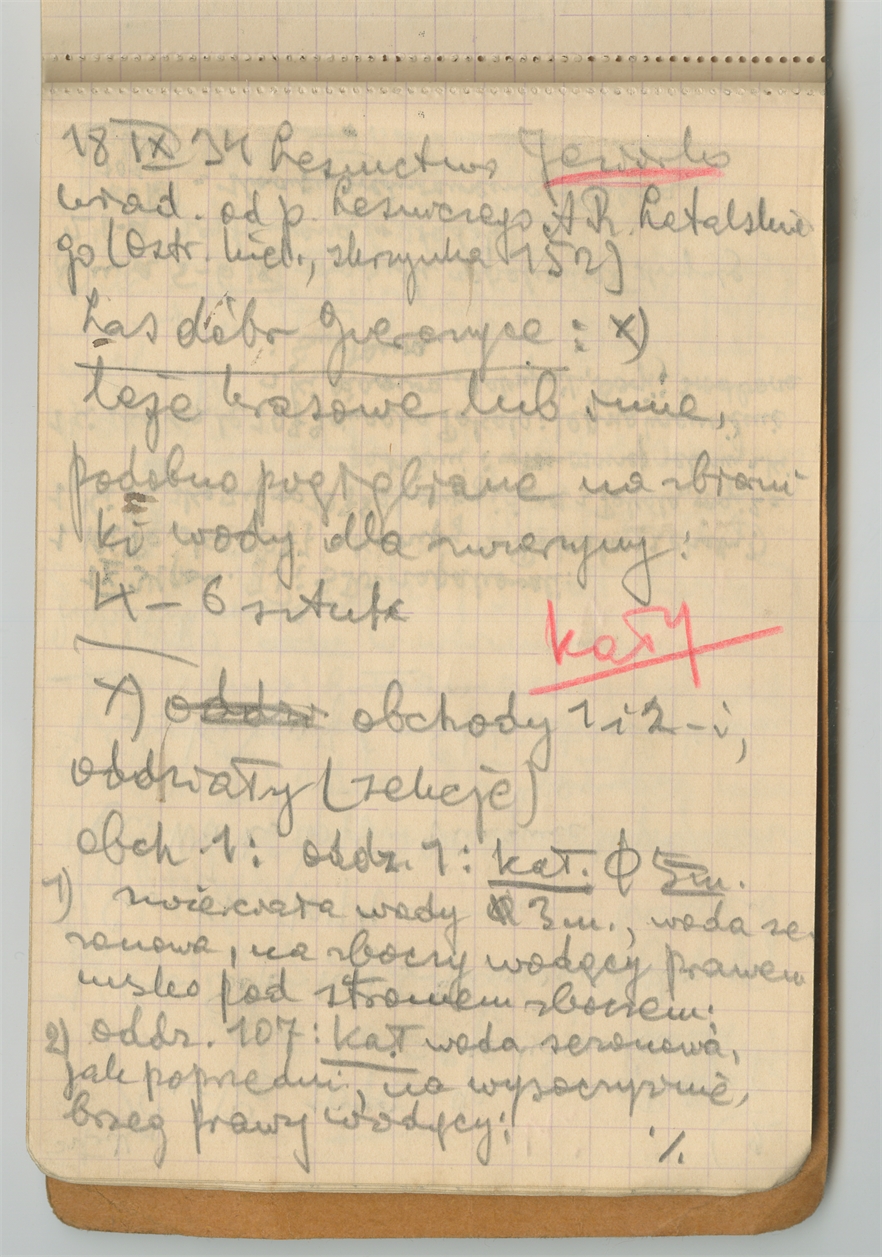 18 IX 34 Leśnictwo Jeziorko
wiad. od p. Leśniczego A. R. Latalskie
go (Ostr. kiel., skrzynka 152)
Las dóbr Gieraszyce : x)
leje krasowe lub inne,
podobno pogłębiane na zbiorni
ki wody dla zwierzyny:
4 – 6 sztuk
kały
x) oddzi obchody 1 i 2-i,
oddziały (sekcje)
obch. 1: oddz. 1: kał. ϕ 5m.
1) zwierciała wody 3 m., woda se
zonowa, na zboczy wodący prawem
nisko pod stromem zboczem;
2) oddz. 107: kał woda sezonowa,
jak poprzedni, na wysoczyźnie,
brzeg prawy wodący;
·/.